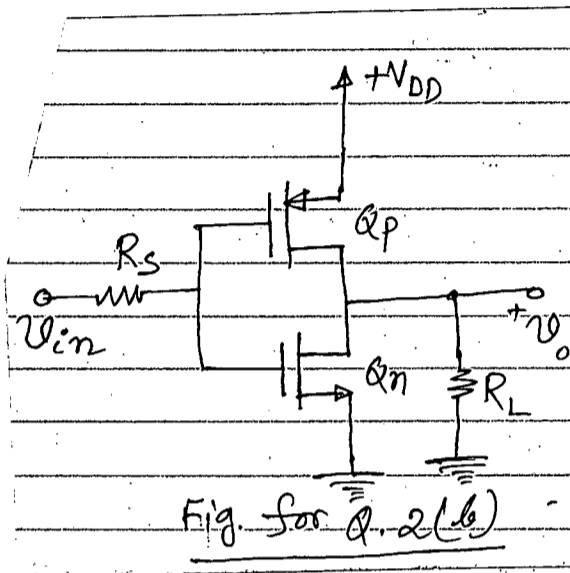 +V_DD
Q_P
R_S
v_in
+
v_o
Q_n
R_L
Fig. for Q.2(b)